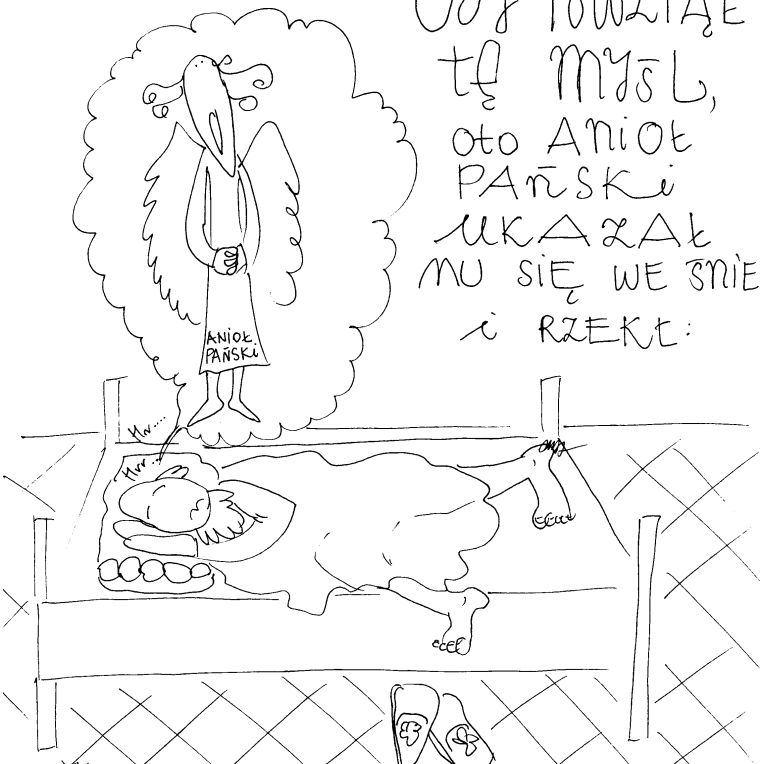 GDY POWZIĄŁ
TĘ MYŚL,
OTO ANIOŁ
PAŃSKI
UKAZAŁ
MU SIĘ WE ŚNIE
i RZEKŁ:
ANIOŁ
PAŃSKi
Hrr...
Hrr...